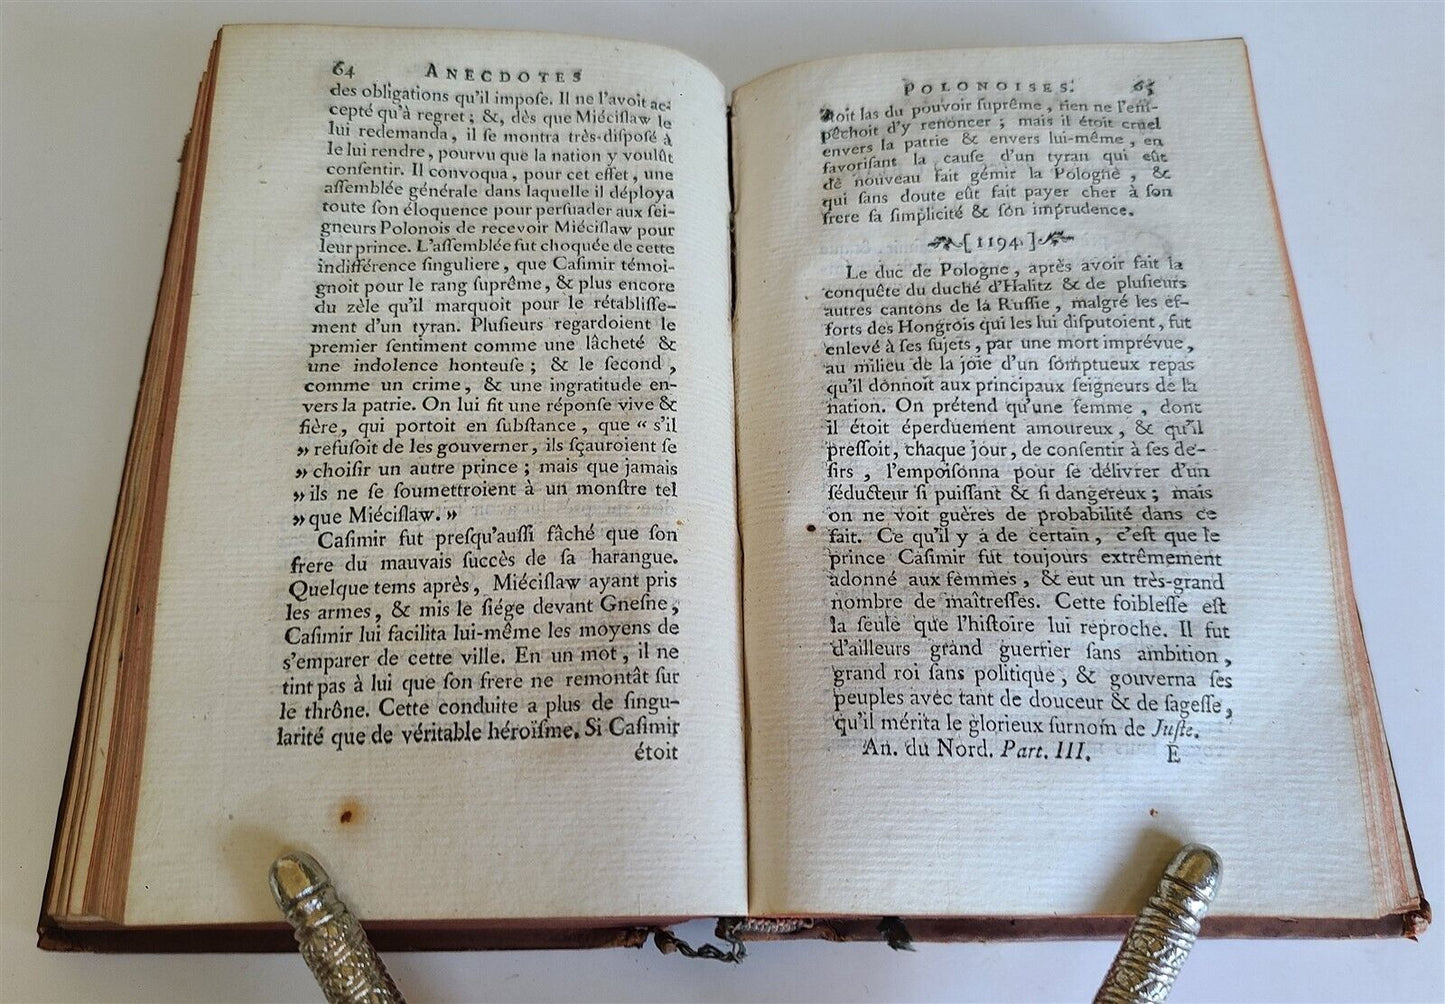 64 ANECDOTES
des obligations qu'il impoſe. Il ne l'avoit ac-
cepté qu'à regret ; &, dès que Miéciſlaw le
lui redemanda, il ſe montra très-diſpoſé à
le lui rendre, pourvu que la nation y voulût
conſentir. Il convoqua, pour cet effet, une
aſſemblée générale dans laquelle il déploya
toute ſon éloquence pour perſuader aux ſei-
gneurs Polonois de recevoir Miéciſlaw pour
leur prince. L'aſſemblée fut choquée de cette
indifférence ſinguliere, que Caſimir témoi-
gnoit pour le rang ſuprême, & plus encore
du zèle qu'il marquoit pour le rétabliſſe-
ment d'un tyran. Pluſieurs regardoient le
premier ſentiment comme une lâcheté &
une indolence honteuſe ; & le ſecond,
comme un crime, & une ingratitude en-
vers la patrie. On lui fit une réponſe vive &
fière, qui portoit en ſubſtance, que “ s'il
» refuſoit de les gouverner, ils ſçauroient ſe
» choiſir un autre prince ; mais que jamais
» ils ne ſe ſoumettroient à un monſtre tel
» que Miéciſlaw. »
Caſimir fut preſqu'auſſi fâché que ſon
frere du mauvais ſuccès de ſa harangue.
Quelque tems après, Miéciſlaw ayant pris
les armes, & mis le ſiége devant Gneſne,
Caſimir lui facilita lui-même les moyens de
s'emparer de cette ville. En un mot, il ne
tint pas à lui que ſon frere ne remontât ſur
le thrône. Cette conduite a plus de ſingu-
larité que de véritable héroïſme. Si Caſimir
étoit
POLONOISES. 65
étoit las du pouvoir ſuprême, rien ne l'em-
pêchoit d'y renoncer ; mais il étoit cruel
envers la patrie & envers lui-même, en
favoriſant la cauſe d'un tyran qui eût
de nouveau fait gémir la Pologne, &
qui ſans doute eût fait payer cher à ſon
frere ſa ſimplicité & ſon imprudence.
[1194.]
Le duc de Pologne, après avoir fait la
conquête du duché d'Halitz & de pluſieurs
autres cantons de la Ruſſie, malgré les ef-
forts des Hongrois qui les lui diſputoient, fut
enlevé à ſes ſujets, par une mort imprévue,
au milieu de la joie d'un ſomptueux repas
qu'il donnoit aux principaux ſeigneurs de la
nation. On prétend qu'une femme, dont
il étoit éperduement amoureux, & qu'il
preſſoit, chaque jour, de conſentir à ſes de-
ſirs, l'empoiſonna pour ſe délivrer d'un
ſéducteur ſi puiſſant & ſi dangereux ; mais
on ne voit guères de probabilité dans ce
fait. Ce qu'il y a de certain, c'eſt que le
prince Caſimir fut toujours extrêmement
adonné aux femmes, & eut un très-grand
nombre de maîtreſſes. Cette foibleſſe eſt
la ſeule que l'hiſtoire lui reproche. Il fut
d'ailleurs grand guerrier ſans ambition,
grand roi ſans politique, & gouverna ſes
peuples avec tant de douceur & de ſageſſe,
qu'il mérita le glorieux ſurnom de Juſte.
An. du Nord. Part. III. E